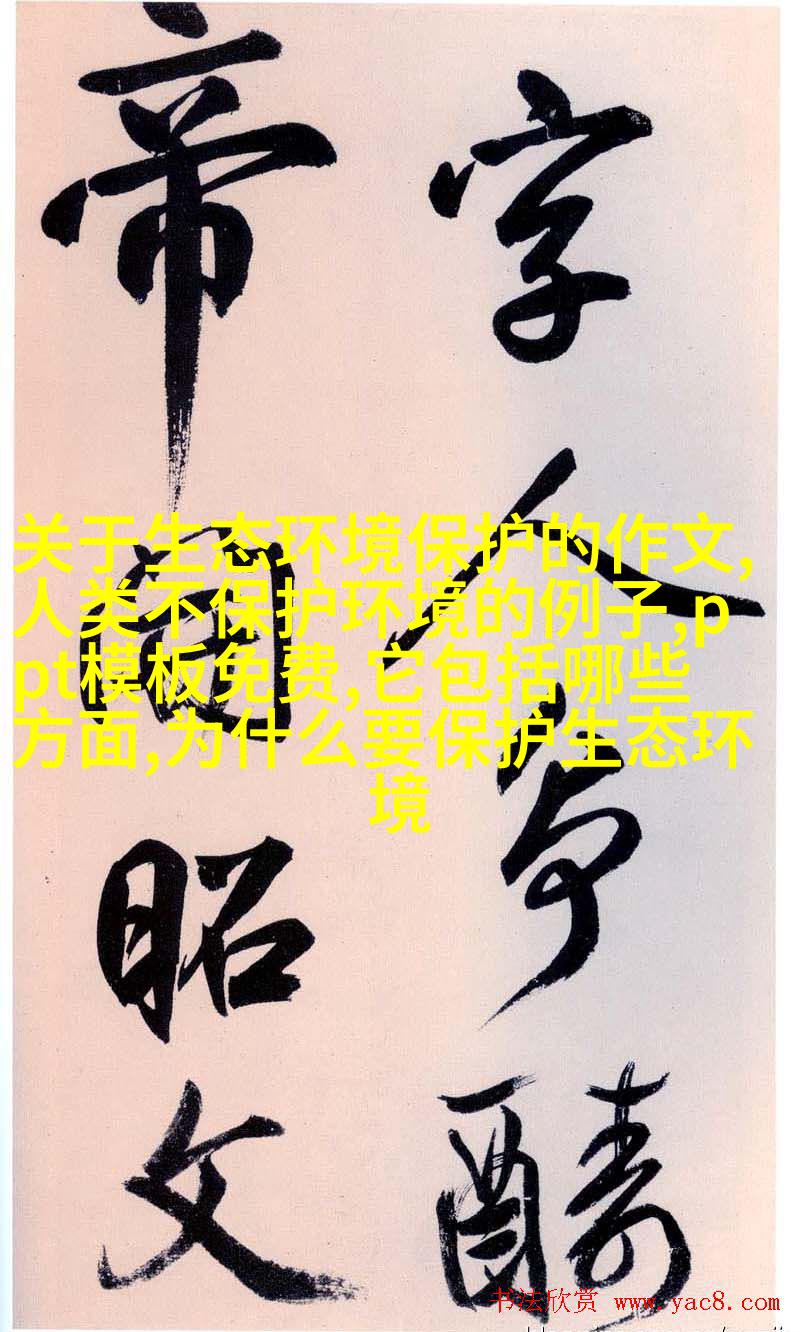 字人争酬
帝闻昭文
关于生态环境保护的作文,
人类不保护环境的例子,p
pt模板免费,它包括哪些
方面,为什么要保护生态环
境
书法欣赏 www.yac8.com